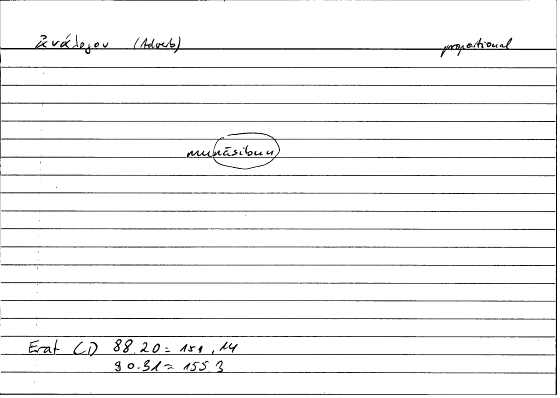 ἀνάλογον (Adverb) proportional
munāsibun
Erat (I) 88.20 = 151,14
90.31 = 155.3